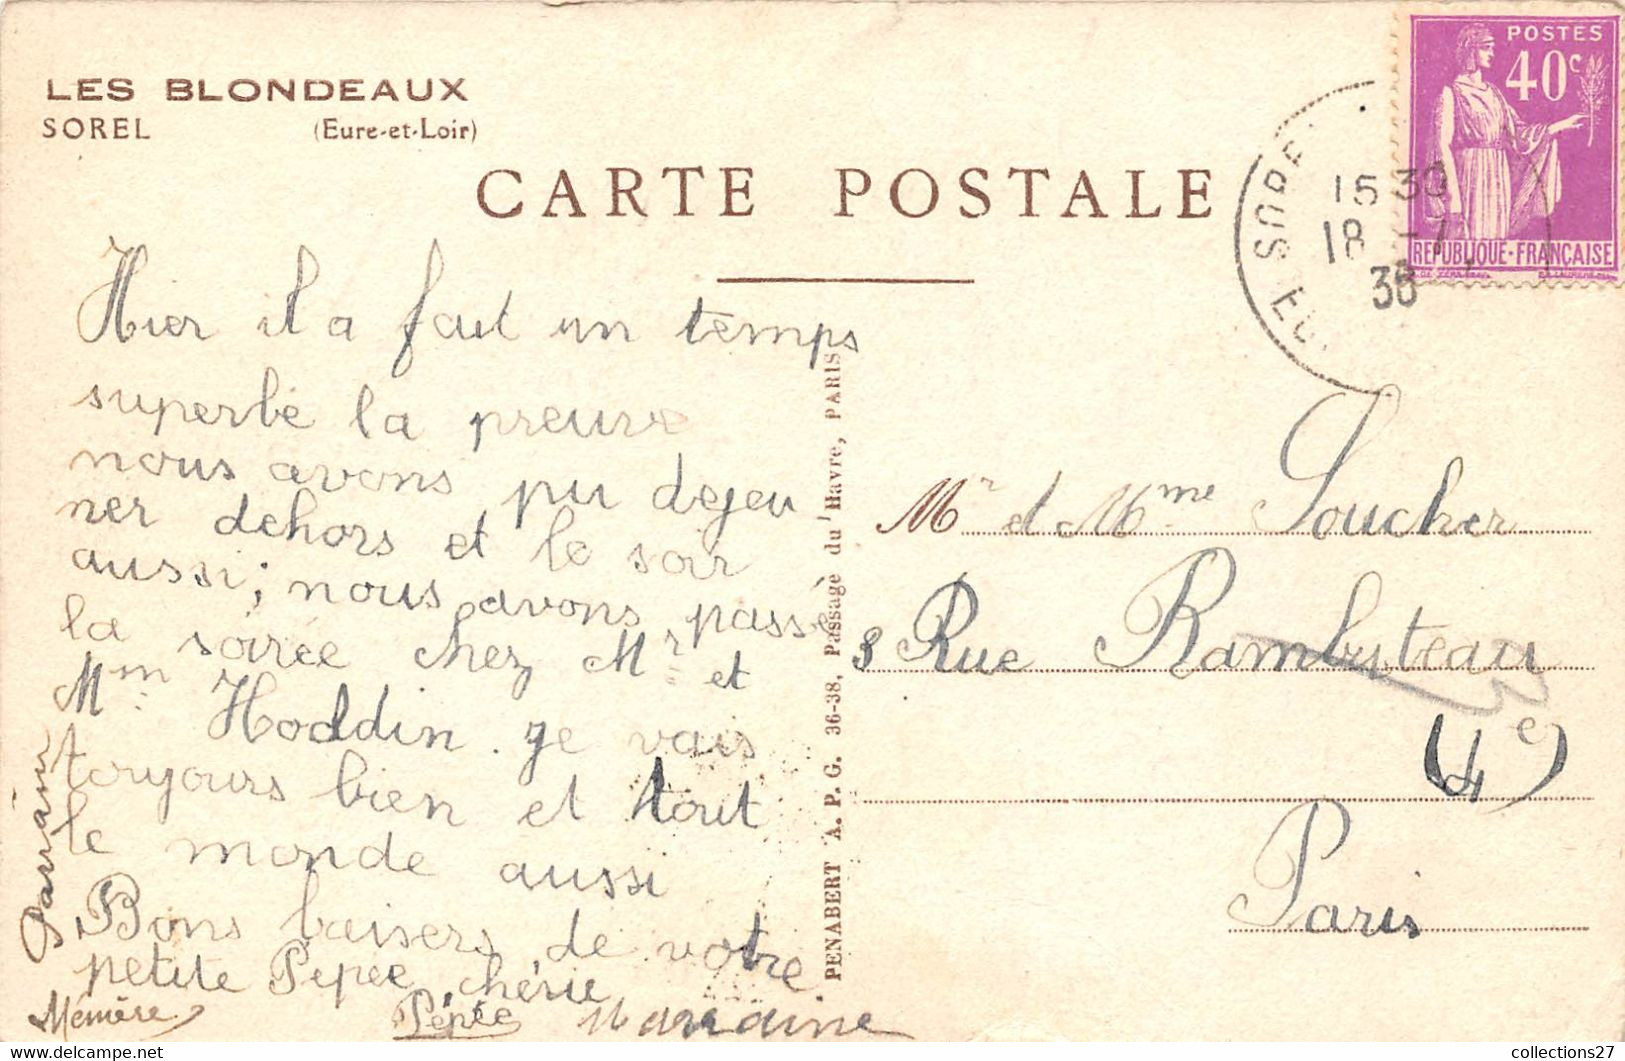 LES BLONDEAUX
SOREL (Eure-et-Loir)
CARTE POSTALE
POSTES
40c
REPUBLIQUE·FRANCAISE
SORE
15 30
18 -7
36
Hier il a fait un temps
superbe la preuve
nous avons pu dejeu
ner dehors et le soir
aussi; nous avons passé
la soirée chez Mr et
Mm Hoddin. je vais
toujours bien et tout
le monde aussi
Bons baisers de votre
petite Pepée chérie
Mémère Pépée Marraine
Parrain
PENABERT A. P. G. 36-38, Passage du Havre, PARIS
Mr et Mme Soucher
8 Rue Rambuteau
3
(4e)
Paris
collections27